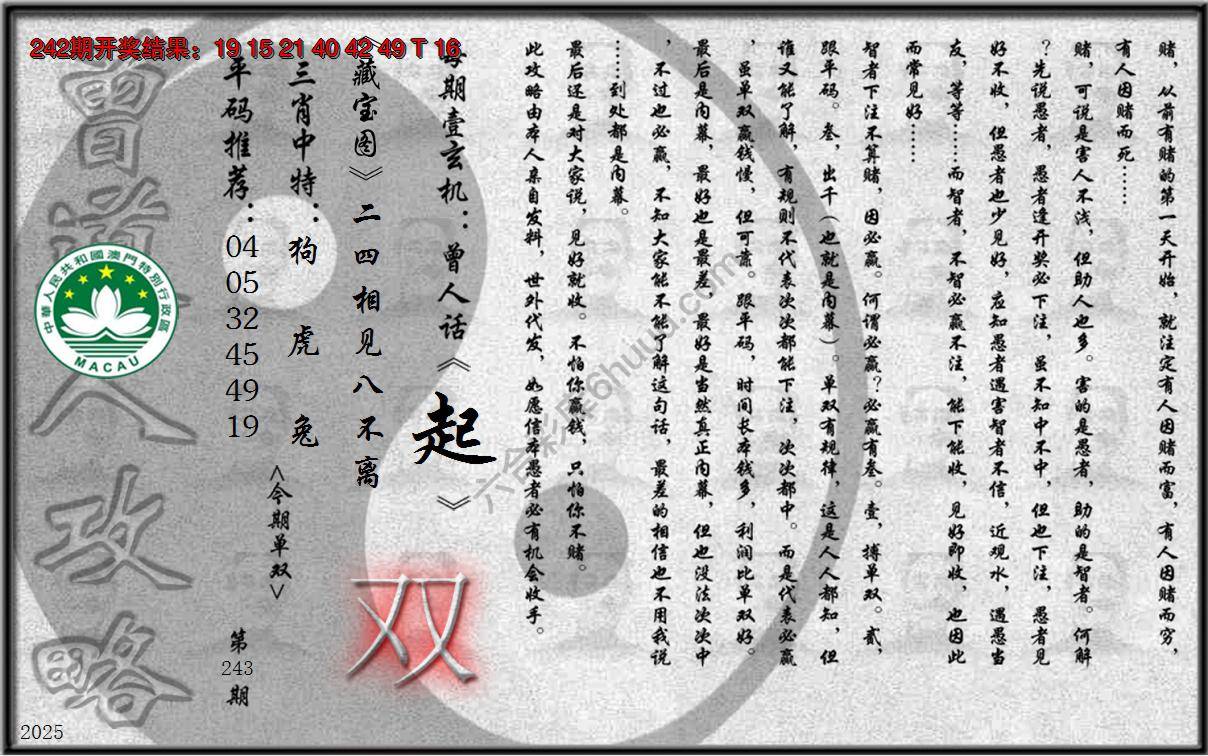 242期开奖结果：19 15 21 40 42 49 T 16
赌，从前有赌的第一天开始，就注定有人因赌而富，有人因赌而穷，
有人因赌而死……
赌，可说是害人不浅，但助人也多。害的是愚者，助的是智者。何解
？先说愚者，愚者逢开奖必下注，虽不知中不中，但也下注，愚者见
好不收，但愚者也少见好，应知愚者遇害智者不信，近观水，遇愚当
友，等等……而智者，不智必赢不注，能下能收，见好即收，也因此
而常见好……
智者下注不算赌，因必赢。何谓必赢？必赢有叁。壹，搏单双。贰，
跟平码。叁，出千（也就是内幕）。单双有规律，这是人人都知，但
谁又能了解，有规则不代表次次都能下注，次次都中。而是代表必赢
，虽单双赢钱慢，但可靠。跟平码，时间长本钱多，利润比单双好。
最后是内幕，最好也是最差，最好是当然真正内幕，但也没法次次中
，不过也必赢，不知大家能不能了解这句话，最差的相信也不用我说
……到处都是内幕。
最后还是对大家说，见好就收。不怕你赢钱，只怕你不赌。
此攻略由本人亲自发料，世外代发，如愿信本愚者必有机会收手。
每期壹玄机：曾人话《起》
《藏宝图》二四相见八不离
双
三肖中特：狗 虎 兔
<今期单双>
平码推荐：
04
05
32
45
49
19
第
243
期
曾道人攻略
中華人民共和國澳門特別行政區
MACAU
六合彩库6huuu.com
2025